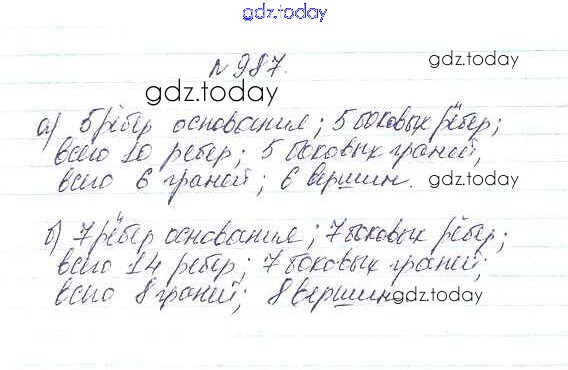 gdz.today
№987.
gdz.today
gdz.today
а) 5 рёбер основания; 5 боковых рёбер;
всего 10 ребер; 5 боковых граней,
всего 6 граней; 6 вершин. gdz.today
б) 7 рёбер основания; 7 боковых рёбер;
всего 14 ребер; 7 боковых граней;
всего 8 граней; 8 вершин. gdz.today